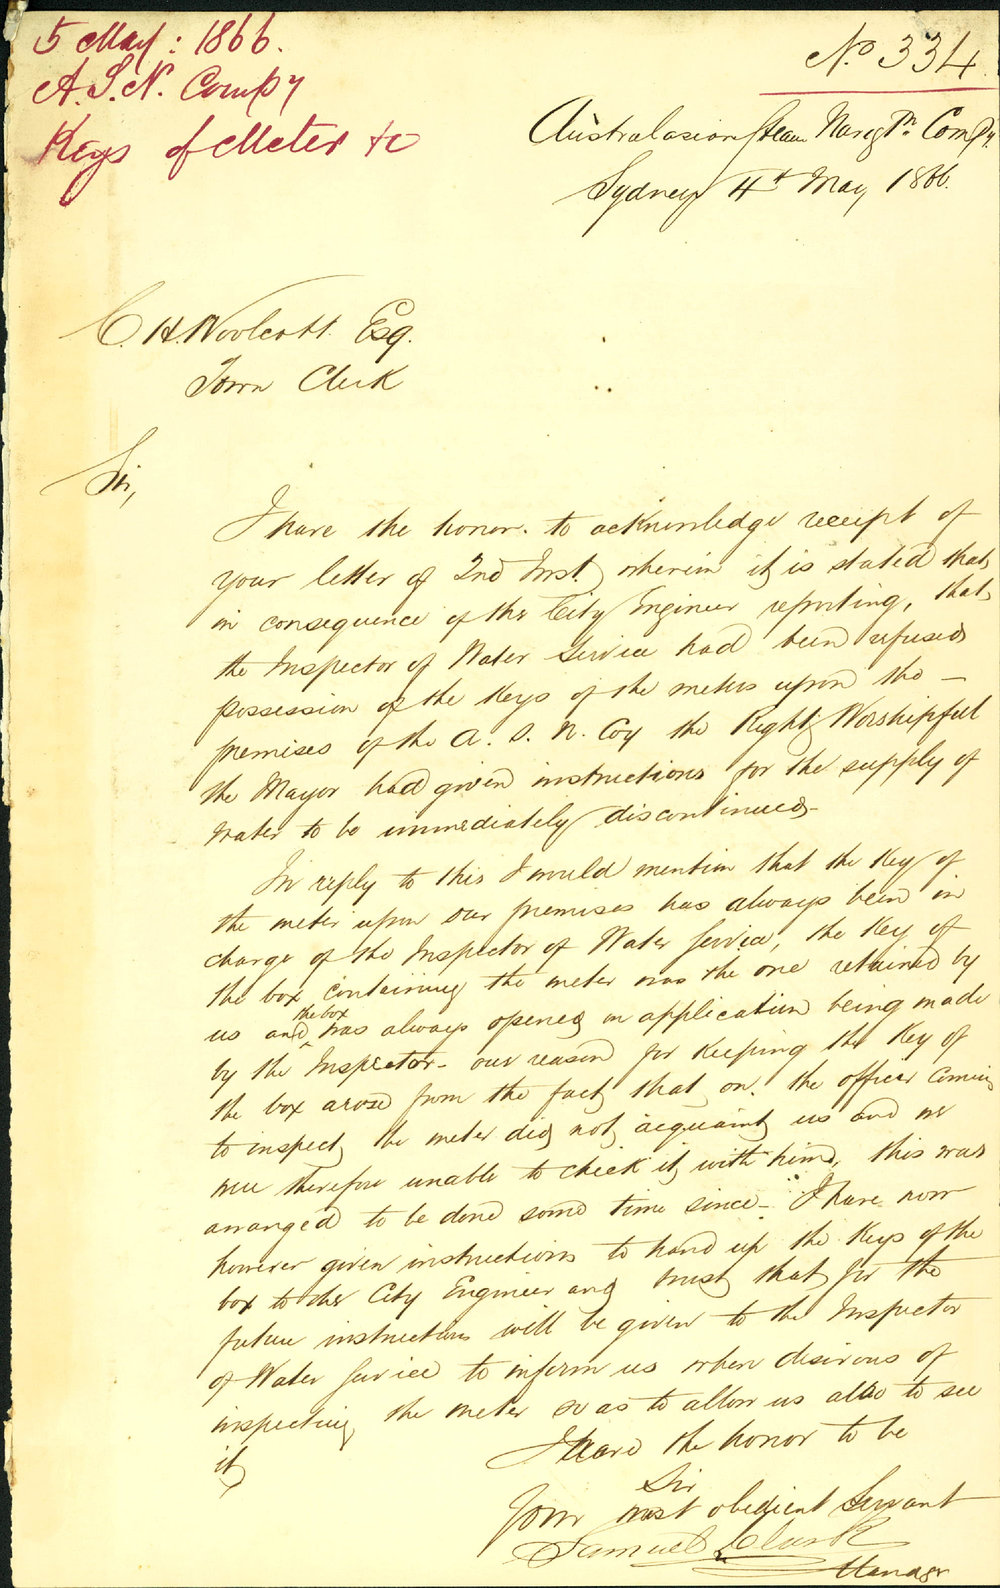 5 May: 1866.
A.S.N. Compy
Keys of Meter &c
No. 334
Australasian Steam Navign. Compy.
Sydney 4th May 1866.
C. H. Woolcott. Esq.
Town Clerk
Sir,
I have the honor. to acknowledge receipt of
your letter of 2nd Inst. wherein it is stated that
in consequence of the City Engineer reporting, that
the Inspector of Water Service had been refused
possession of the Keys of the meters upon the —
premises of the A. S. N. Coy the Right Worshipful
the Mayor had given instructions for the supply of
Water to be immediately discontinued—
In reply to this I would mention that the Key of
the meter upon our premises has always been in
charge of the Inspector of Water Service, the Key of
the box containing the meter was the one retained by
us and the box was always opened on application being made
by the Inspector— our reason for Keeping the Key of
the box arose from the fact that on. the officer coming
to inspect the meter did not acquaint us and we
were therefore unable to check it with him, this was
arranged to be done some time since—. I have now
however given instructions to hand up the Keys of the
box to the City Engineer and trust that for the
future instructions will be given to the Inspector
of Water Service to inform us when desirous of
inspecting the meter so as to allow us also to see
it
I have the honor to be
Sir
Your most obedient Servant
Samuel Clark
Manager